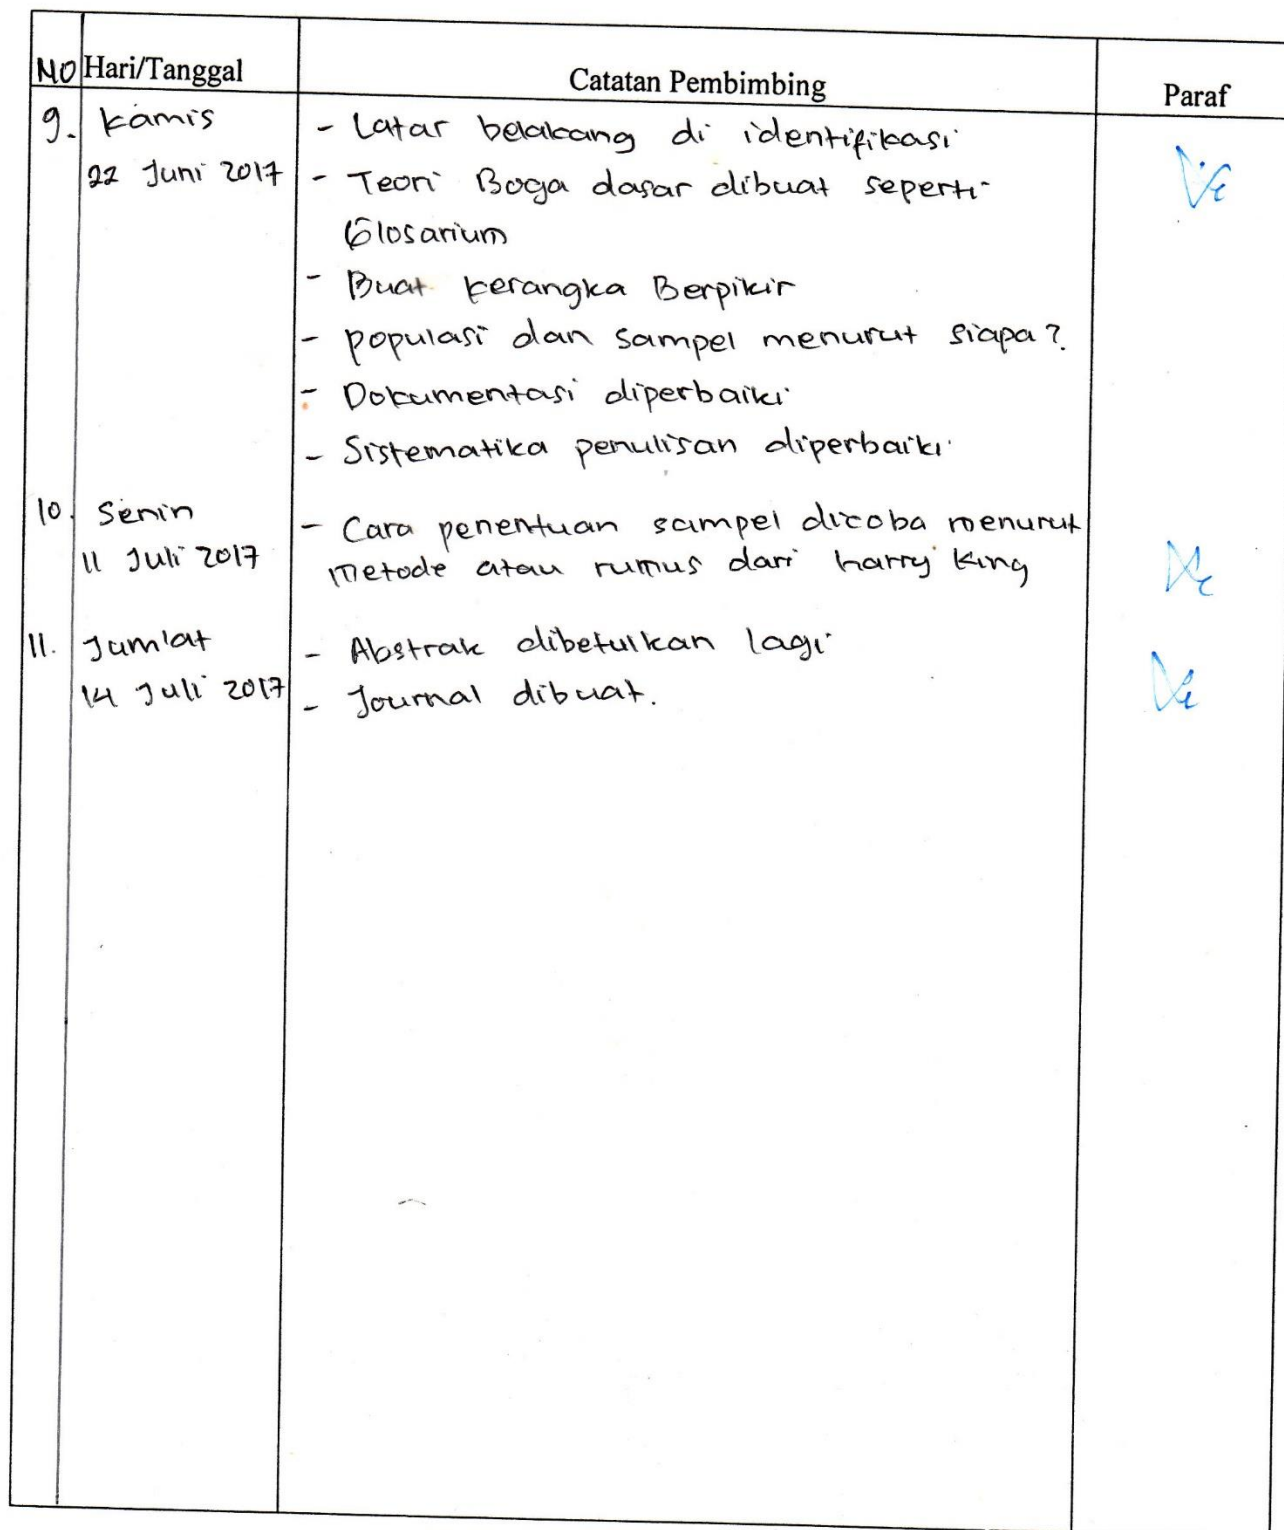 NO Hari/Tanggal Catatan Pembimbing Paraf
9. Kamis - Latar belakang di identifikasi
22 Juni 2017 - Teori Boga dasar dibuat seperti
Glosarium
- Buat kerangka Berpikir
- populasi dan sampel menurut siapa?
- Dokumentasi diperbaiki
- Sistematika penulisan diperbaiki
10. Senin - Cara penentuan sampel dicoba menurut
11 Juli 2017 Metode atau rumus dari harry King
11. Jum'at - Abstrak dibetulkan lagi
14 Juli 2017 - Journal dibuat.